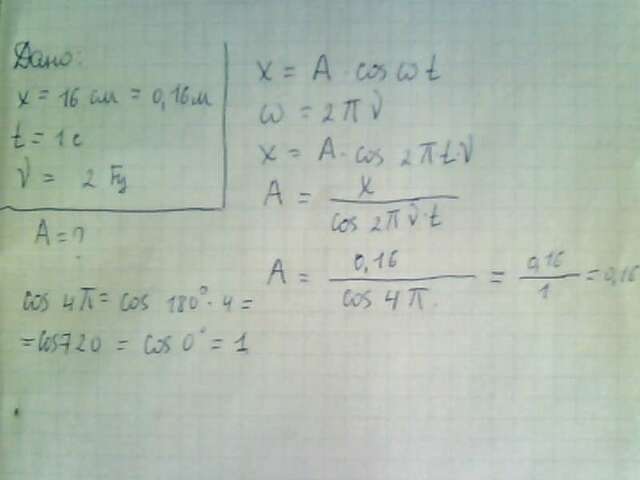 Дано:
x = 16 см = 0,16м
t = 1 с
ν = 2 Гц
A = ?
cos 4π = cos 180° · 4 =
= cos720 = cos 0° = 1
x = A · cos ω t
ω = 2 π ν
x = A · cos 2 π · t · ν
A = x / cos 2π ν · t
A = 0,16 / cos 4 π. = 0,16 / 1 = 0,16